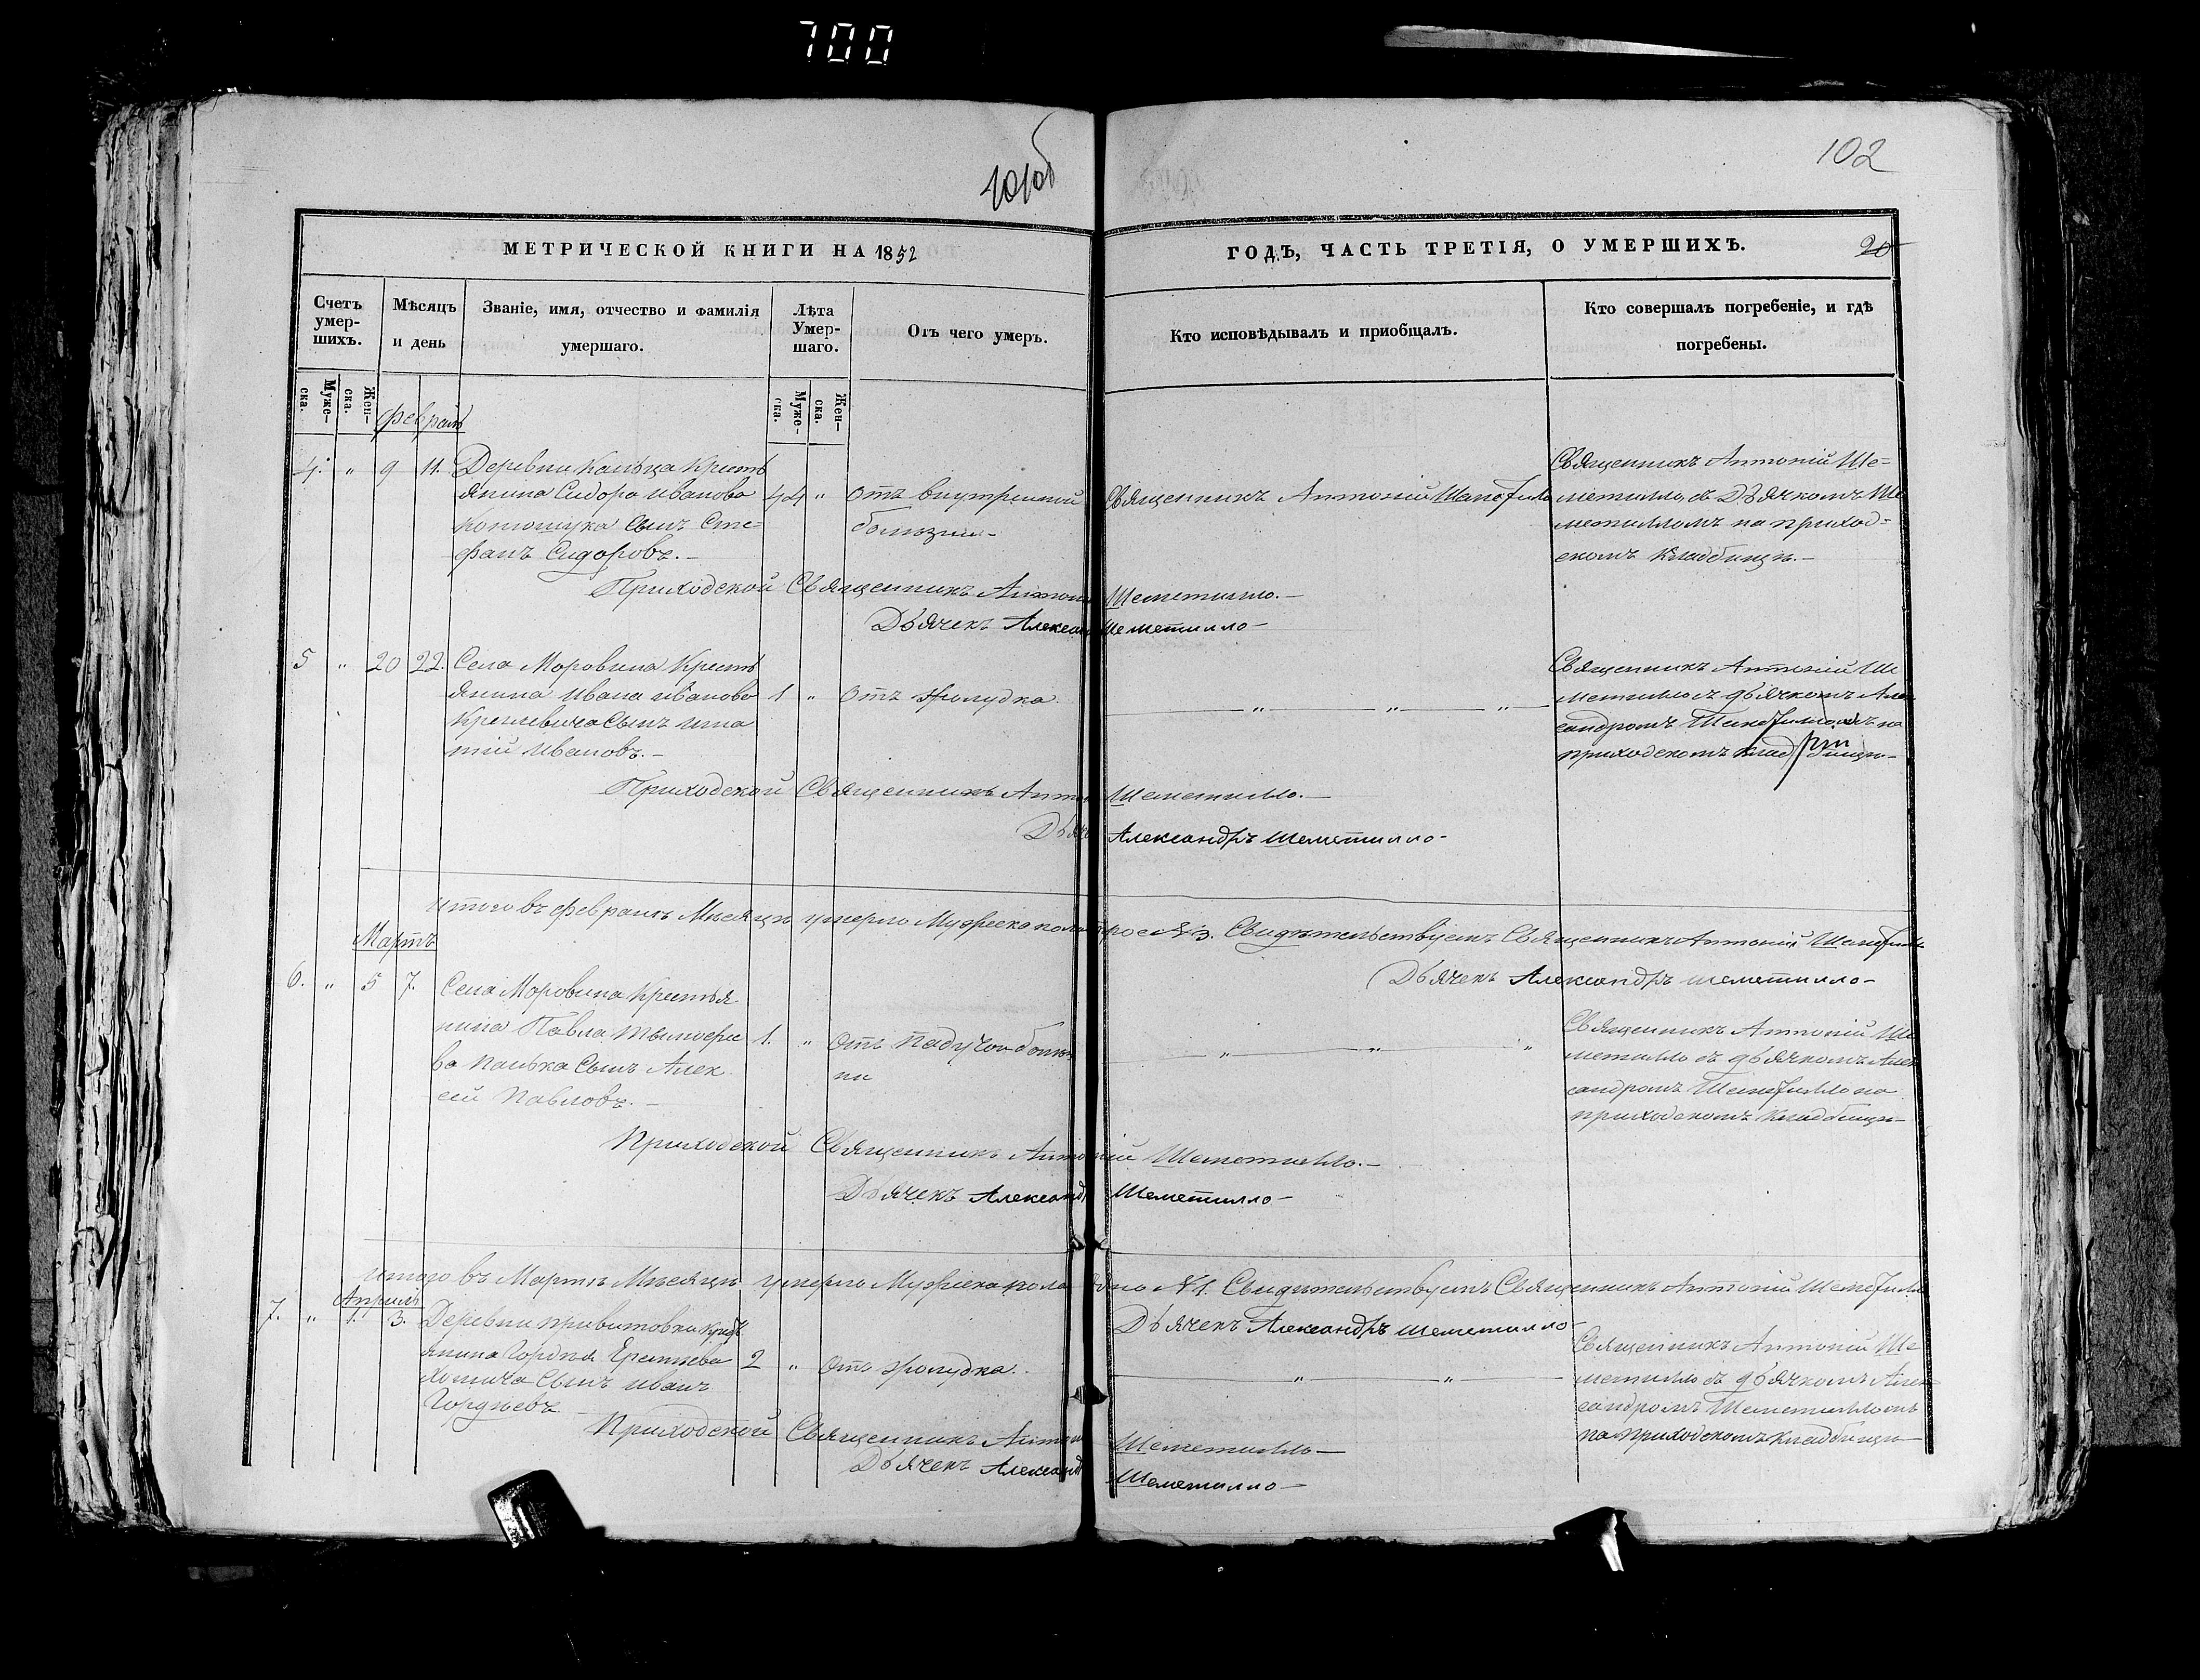 700
101об
102
МЕТРИЧЕСКОЙ КНИГИ НА 1852
ГОДЪ, ЧАСТЬ ТРЕТІЯ, О УМЕРШИХЪ.
20
Счетъ умер-шихъ.
Мѣсяцъ и день
Званіе, имя, отчество и фамилія умершаго.
Лѣта Умер-шаго.
Отъ чего умеръ.
Кто исповѣдывалъ и приобщалъ.
Кто совершалъ погребеніе, и гдѣ погребены.
Муже-ска.
Жен-ска.
Муже-ска.
Жен-ска.
Февраль
4. " 9 11. Деревни Кольца Кресть
янина Сидора Иванова 44 "
сынъ Сте=
фанъ Сидоровъ.-
отъ внутренной
болѣзни-
Священникъ Антоній Шеметилло
Священникъ Антоній Ше=
метилло съ Дьячкомъ Ше
метилломъ на приход=
скомъ кладбищѣ.-
Приходской Священникъ Антоній Шеметилло.-
Дьячекъ Александръ Шеметилло-
5 " 20 22. Села Моровина Кресть
янина Ивана Иванова 1 " отъ желудка.
сынъ Игна
тій Ивановъ.-
Священникъ Антоній Ше
метилло съ дьячкомъ Алек
сандромъ Шеметилломъ на
приходскомъ кладбищѣ-
Приходской Священникъ Антоній Шеметилло.-
Дьячекъ Александръ Шеметилло-
итого въ февралѣ Мѣсяцѣ умерло Мужеска пола трое № 3. Свидѣтельствуемъ Священникъ Антоній Шеметилло
Дьячекъ Александръ Шеметилло-
Мартъ
6. " 5 7. Села Моровина Крестья
нина Павла 1. " отъ падучой болѣз
сынъ Алек ни
сѣй Павловъ.-
Священникъ Антоній Ше
метилло съ дьячкомъ Алек
сандромъ Шеметилло на
приходскомъ кладбищѣ-
Приходской Священникъ Антоній Шеметилло.-
Дьячекъ Александръ Шеметилло-
итого въ Мартѣ Мѣсяцѣ умерло Мужеска пола одно № 1. Свидѣтельствуемъ Священникъ Антоній Шеметилло
Дьячекъ Александръ Шеметилло-
Апрѣль
7. " 1. 3. Деревни Кресть
янина Гордѣя 2 " отъ желудка.
сынъ Иванъ
Гордѣевъ
Священникъ Антоній Ше
метилло съ дьячкомъ Алек
сандромъ Шеметилломъ
на приходскомъ кладбищѣ-
Приходской Священникъ Антоній Шеметилло-
Дьячекъ Александръ Шеметилло-